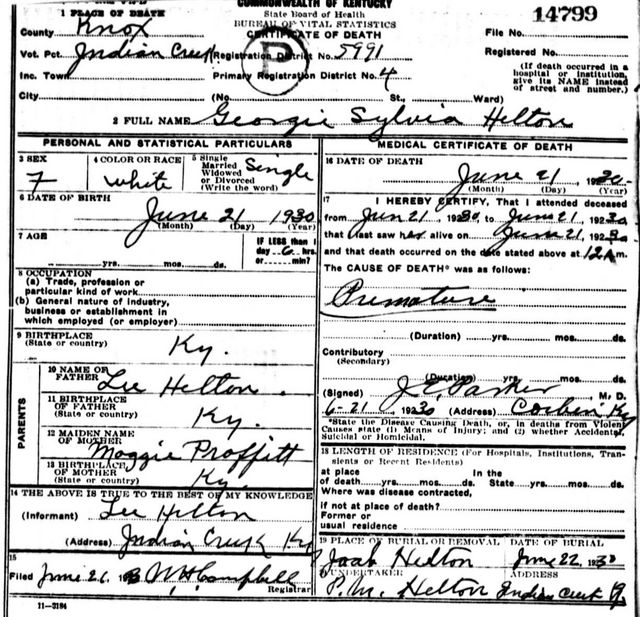 COMMONWEALTH OF KENTUCKY
1 PLACE OF DEATH
State Board of Health
BUREAU OF VITAL STATISTICS
CERTIFICATE OF DEATH
14799
County Knox
File No.
Vot. Pct. Indian Creek Registration District No. 5991
Registered No.
P
Inc. Town Primary Registration District No. 4
(If death occurred in a hospital or institution, give its NAME instead of street and number.)
City (No. St., Ward)
2 FULL NAME Georgie Sylvia Helton
PERSONAL AND STATISTICAL PARTICULARS
3 SEX F
4 COLOR OR RACE white
5 Single Married Widowed or Divorced (Write the word) Single
6 DATE OF BIRTH
June 21 1930
(Month) (Day) (Year)
7 AGE
yrs. mos. ds.
IF LESS than 1 day 6 hrs. or min?
8 OCCUPATION
(a) Trade, profession or particular kind of work
(b) General nature of industry, business or establishment in which employed (or employer)
9 BIRTHPLACE (State or country) Ky.
PARENTS
10 NAME OF FATHER Lee Helton
11 BIRTHPLACE OF FATHER (State or country) Ky.
12 MAIDEN NAME OF MOTHER Maggie Proffitt
13 BIRTHPLACE OF MOTHER (State or country) Ky.
14 THE ABOVE IS TRUE TO THE BEST OF MY KNOWLEDGE
(Informant) Lee Hilton
(Address) Indian Creek Ky
15
Filed June 26 193 WH Campbell
Registrar
11-3184
MEDICAL CERTIFICATE OF DEATH
16 DATE OF DEATH
June 21 1930
(Month) (Day) (Year)
17 I HEREBY CERTIFY, That I attended deceased
from Jun 21, 1930 to June 21, 1930
that I last saw her alive on June 21, 1930
and that death occurred on the date stated above at 12 A m.
The CAUSE OF DEATH* was as follows:
Premature
(Duration) yrs. mos. ds.
Contributory
(Secondary)
(Duration) yrs. mos. ds.
(Signed) J E Parker M. D.
6-21 1930 (Address) Corbin Ky
*State the Disease Causing Death, or, in deaths from Violent
Causes state (1) Means of Injury; and (2) whether Accidental,
Suicidal or Homicidal.
18 LENGTH OF RESIDENCE (For Hospitals, Institutions, Transients or Recent Residents)
at place of death yrs. mos. ds. In the State yrs. mos. ds.
Where was disease contracted,
if not at place of death?
Former or
usual residence
19 PLACE OF BURIAL OR REMOVAL DATE OF BURIAL
Helton June 22, 1930
UNDERTAKER ADDRESS
P. M. Helton Indian Creek Ky.